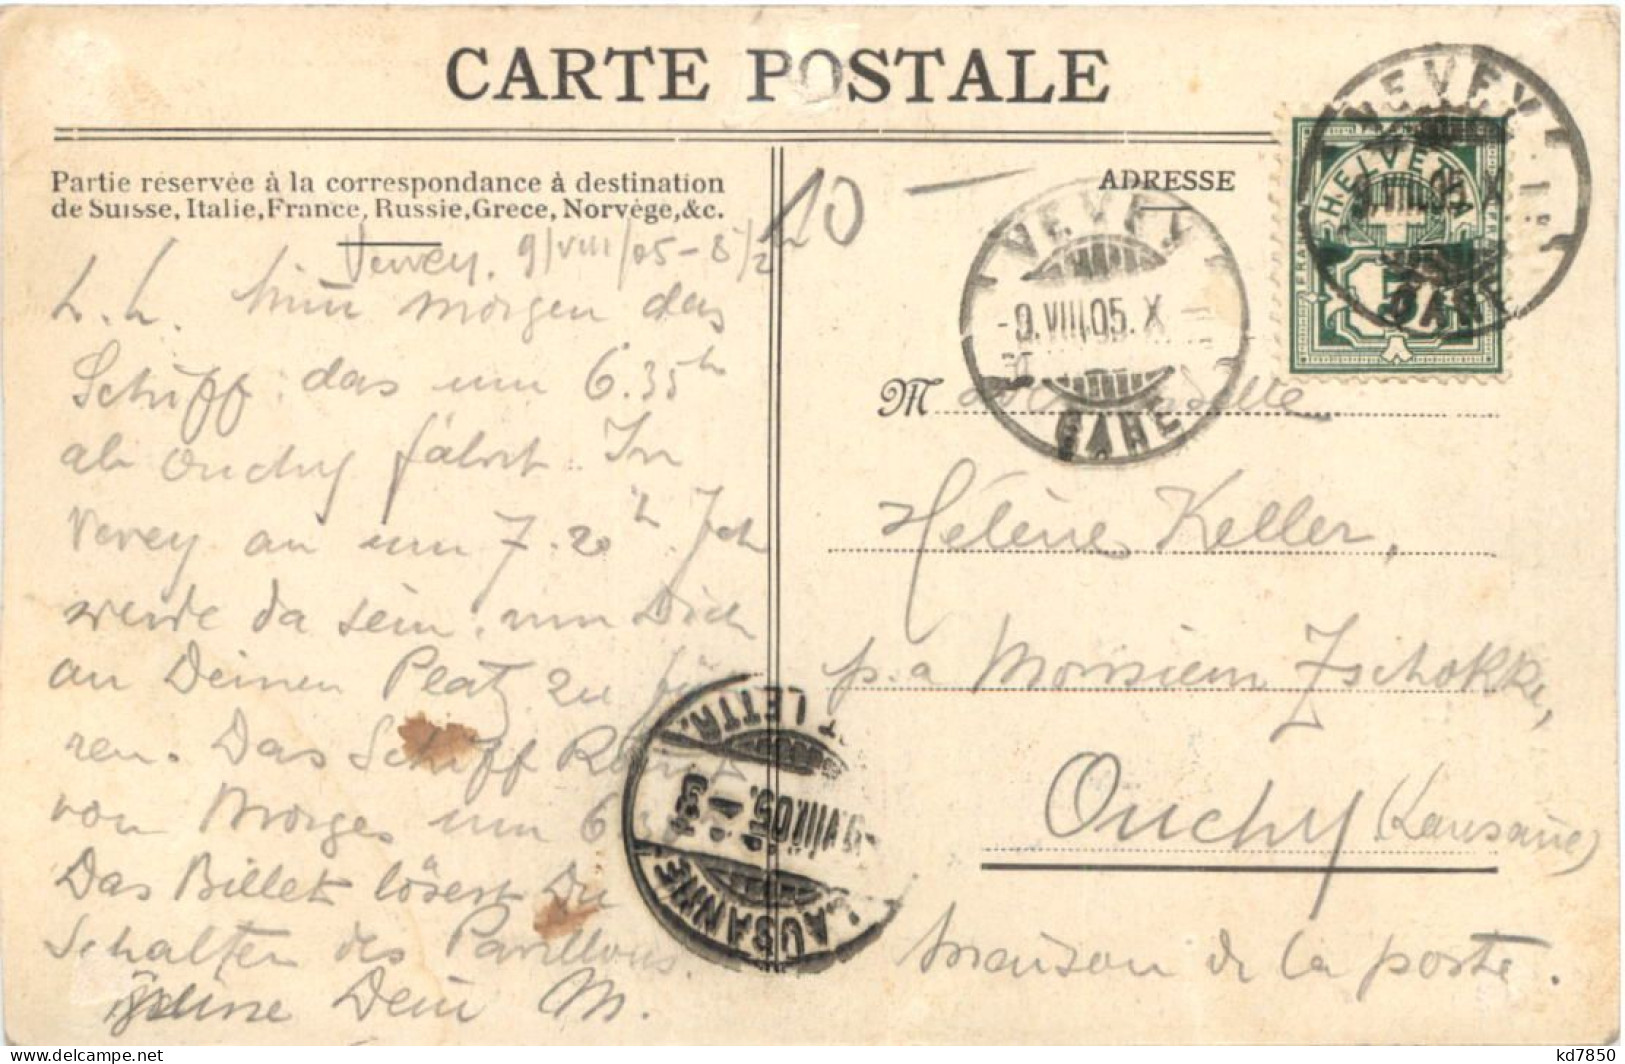 CARTE POSTALE
Partie réservée à la correspondance à destination
de Suisse, Italie, France, Russie, Grece, Norvège, &c.
ADRESSE
10 —
Vevey, 9/VIII/05 - 8 1/2
L. L. Nimm morgen das
Schiff, das um 6.35 h
ab Ouchy fährt. In
Vevey an um 7.20 h. Ich
werde da sein, um Dich
an Deinen Platz zu füh
ren. Das Schiff
von Morges um 6
Das Billet lösest Du
Schalter des Pavillons.
Dein M.
VEVEY
-9.VIII.05.X
GARE
VEVEY
9.VIII.05.X
GARE
HELVETIA
FRANCO
5
M
Hélène Keller,
p. a Monsieur Zschokke,
Ouchy (Lausanne)
Maison de la poste.
LAUSANNE
-9.VIII.05.
LETTR.
kd7850